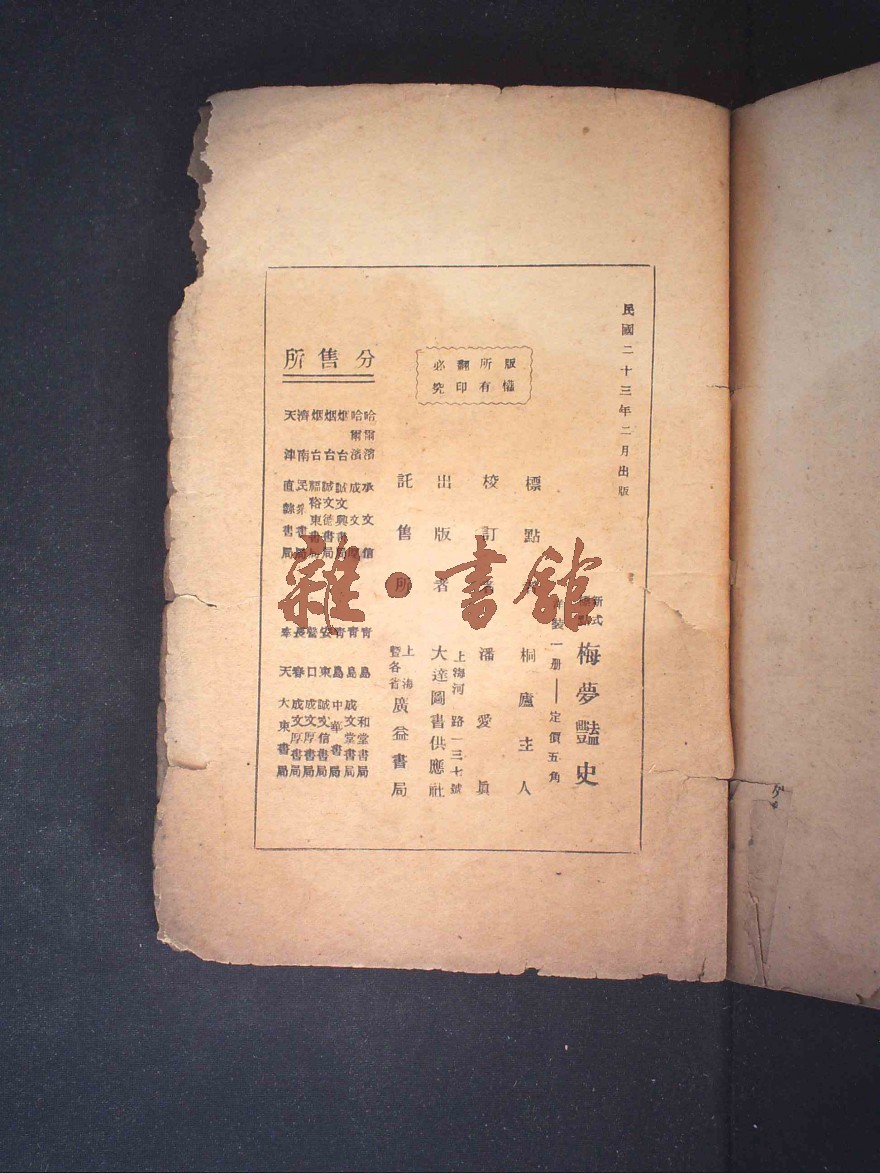 民國二十三年二月出版
新式標點 梅夢豔史
裝一册——定價五角
標點 桐廬主人
校訂者 潘愛眞
出版者 上海河 路一三七號 大達圖書供應社
託售所 上海曁各省 廣益書局
版權所有
翻印必究
分售所
哈爾濱 承文信
哈爾濱 成文
烟台 誠文興書局
烟台 誠文德書局
烟台 福裕東書
濟南 民衆書局
天津 直隸書局
青島 和堂書局
青島 成文堂書局
青島 中華書局
安東 誠文信書局
營口 成文厚書局
長春 成文厚書局
奉天 大東書局
雜·書館